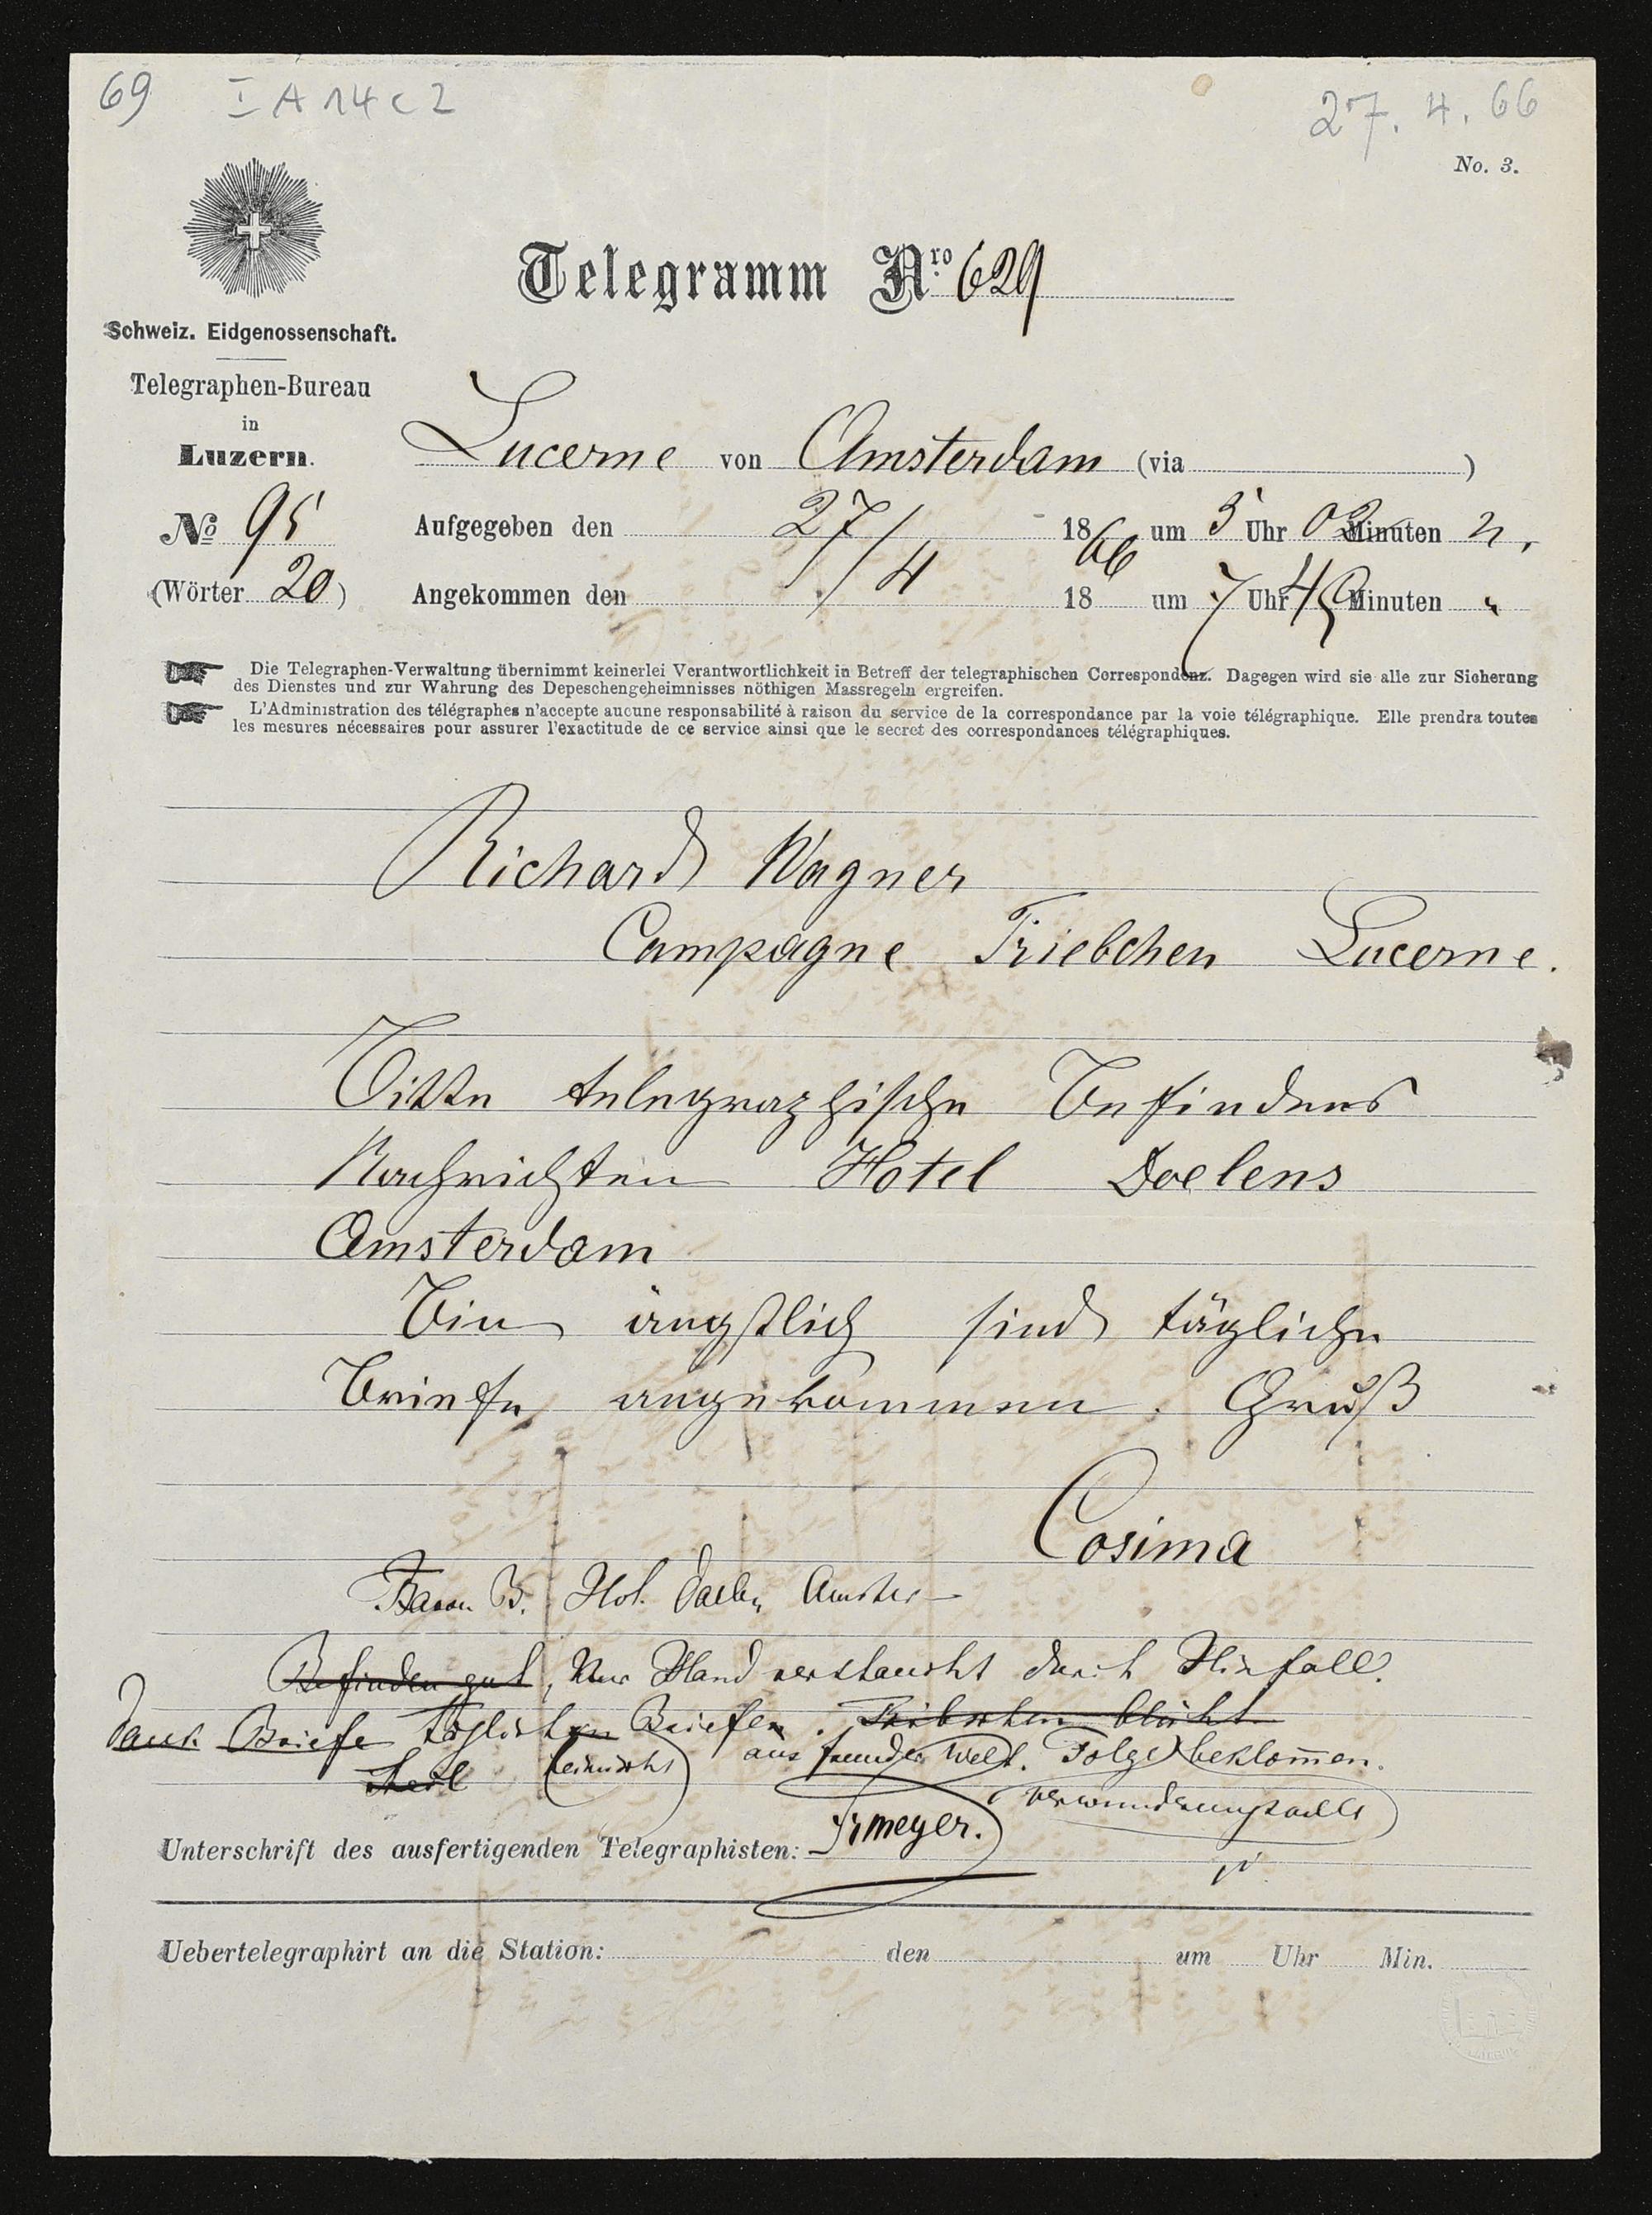 69 I A 14 c 2
27. 4. 66
No. 3.
Telegramm Nro 629
Schweiz. Eidgenossenschaft.
Telegraphen-Bureau
in
Luzern.
Lucerne von Amsterdam (via )
No 95 Aufgegeben den 27/4 1866 um 5 Uhr 02 Minuten n.
(Wörter 20) Angekommen den 18 um 7 Uhr 45 Minuten "
Die Telegraphen-Verwaltung übernimmt keinerlei Verantwortlichkeit in Betreff der telegraphischen Correspondenz. Dagegen wird sie alle zur Sicherung
des Dienstes und zur Wahrung des Depeschengeheimnisses nöthigen Massregeln ergreifen.
L'Administration des télégraphes n'accepte aucune responsabilité à raison du service de la correspondance par la voie télégraphique. Elle prendra toutes
les mesures nécessaires pour assurer l'exactitude de ce service ainsi que le secret des correspondances télégraphiques.
Richard Wagner
Campagne Triebchen Lucerne.
Bitte telegraphische Befindens
Nachrichten Hotel Doelens
Amsterdam
Bin ängstlich sind tägliche
Briefe angekommen. Gruß
Cosima
Baron B. Hot. Amster
Befinden gut, Nur Hand verstaucht durch Hinfall.
Dank Briefe täglichen Briefen. Tribschen blüht
aus fremder Welt. Folge beklom̄en.
verwunderungsvolle
Unterschrift des ausfertigenden Telegraphisten:
Uebertelegraphirt an die Station: den um Uhr Min.